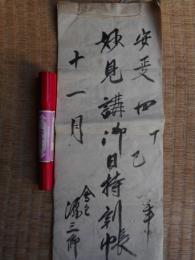 安政四丁巳年
妙見講御日待割帳
十一月
源三郎